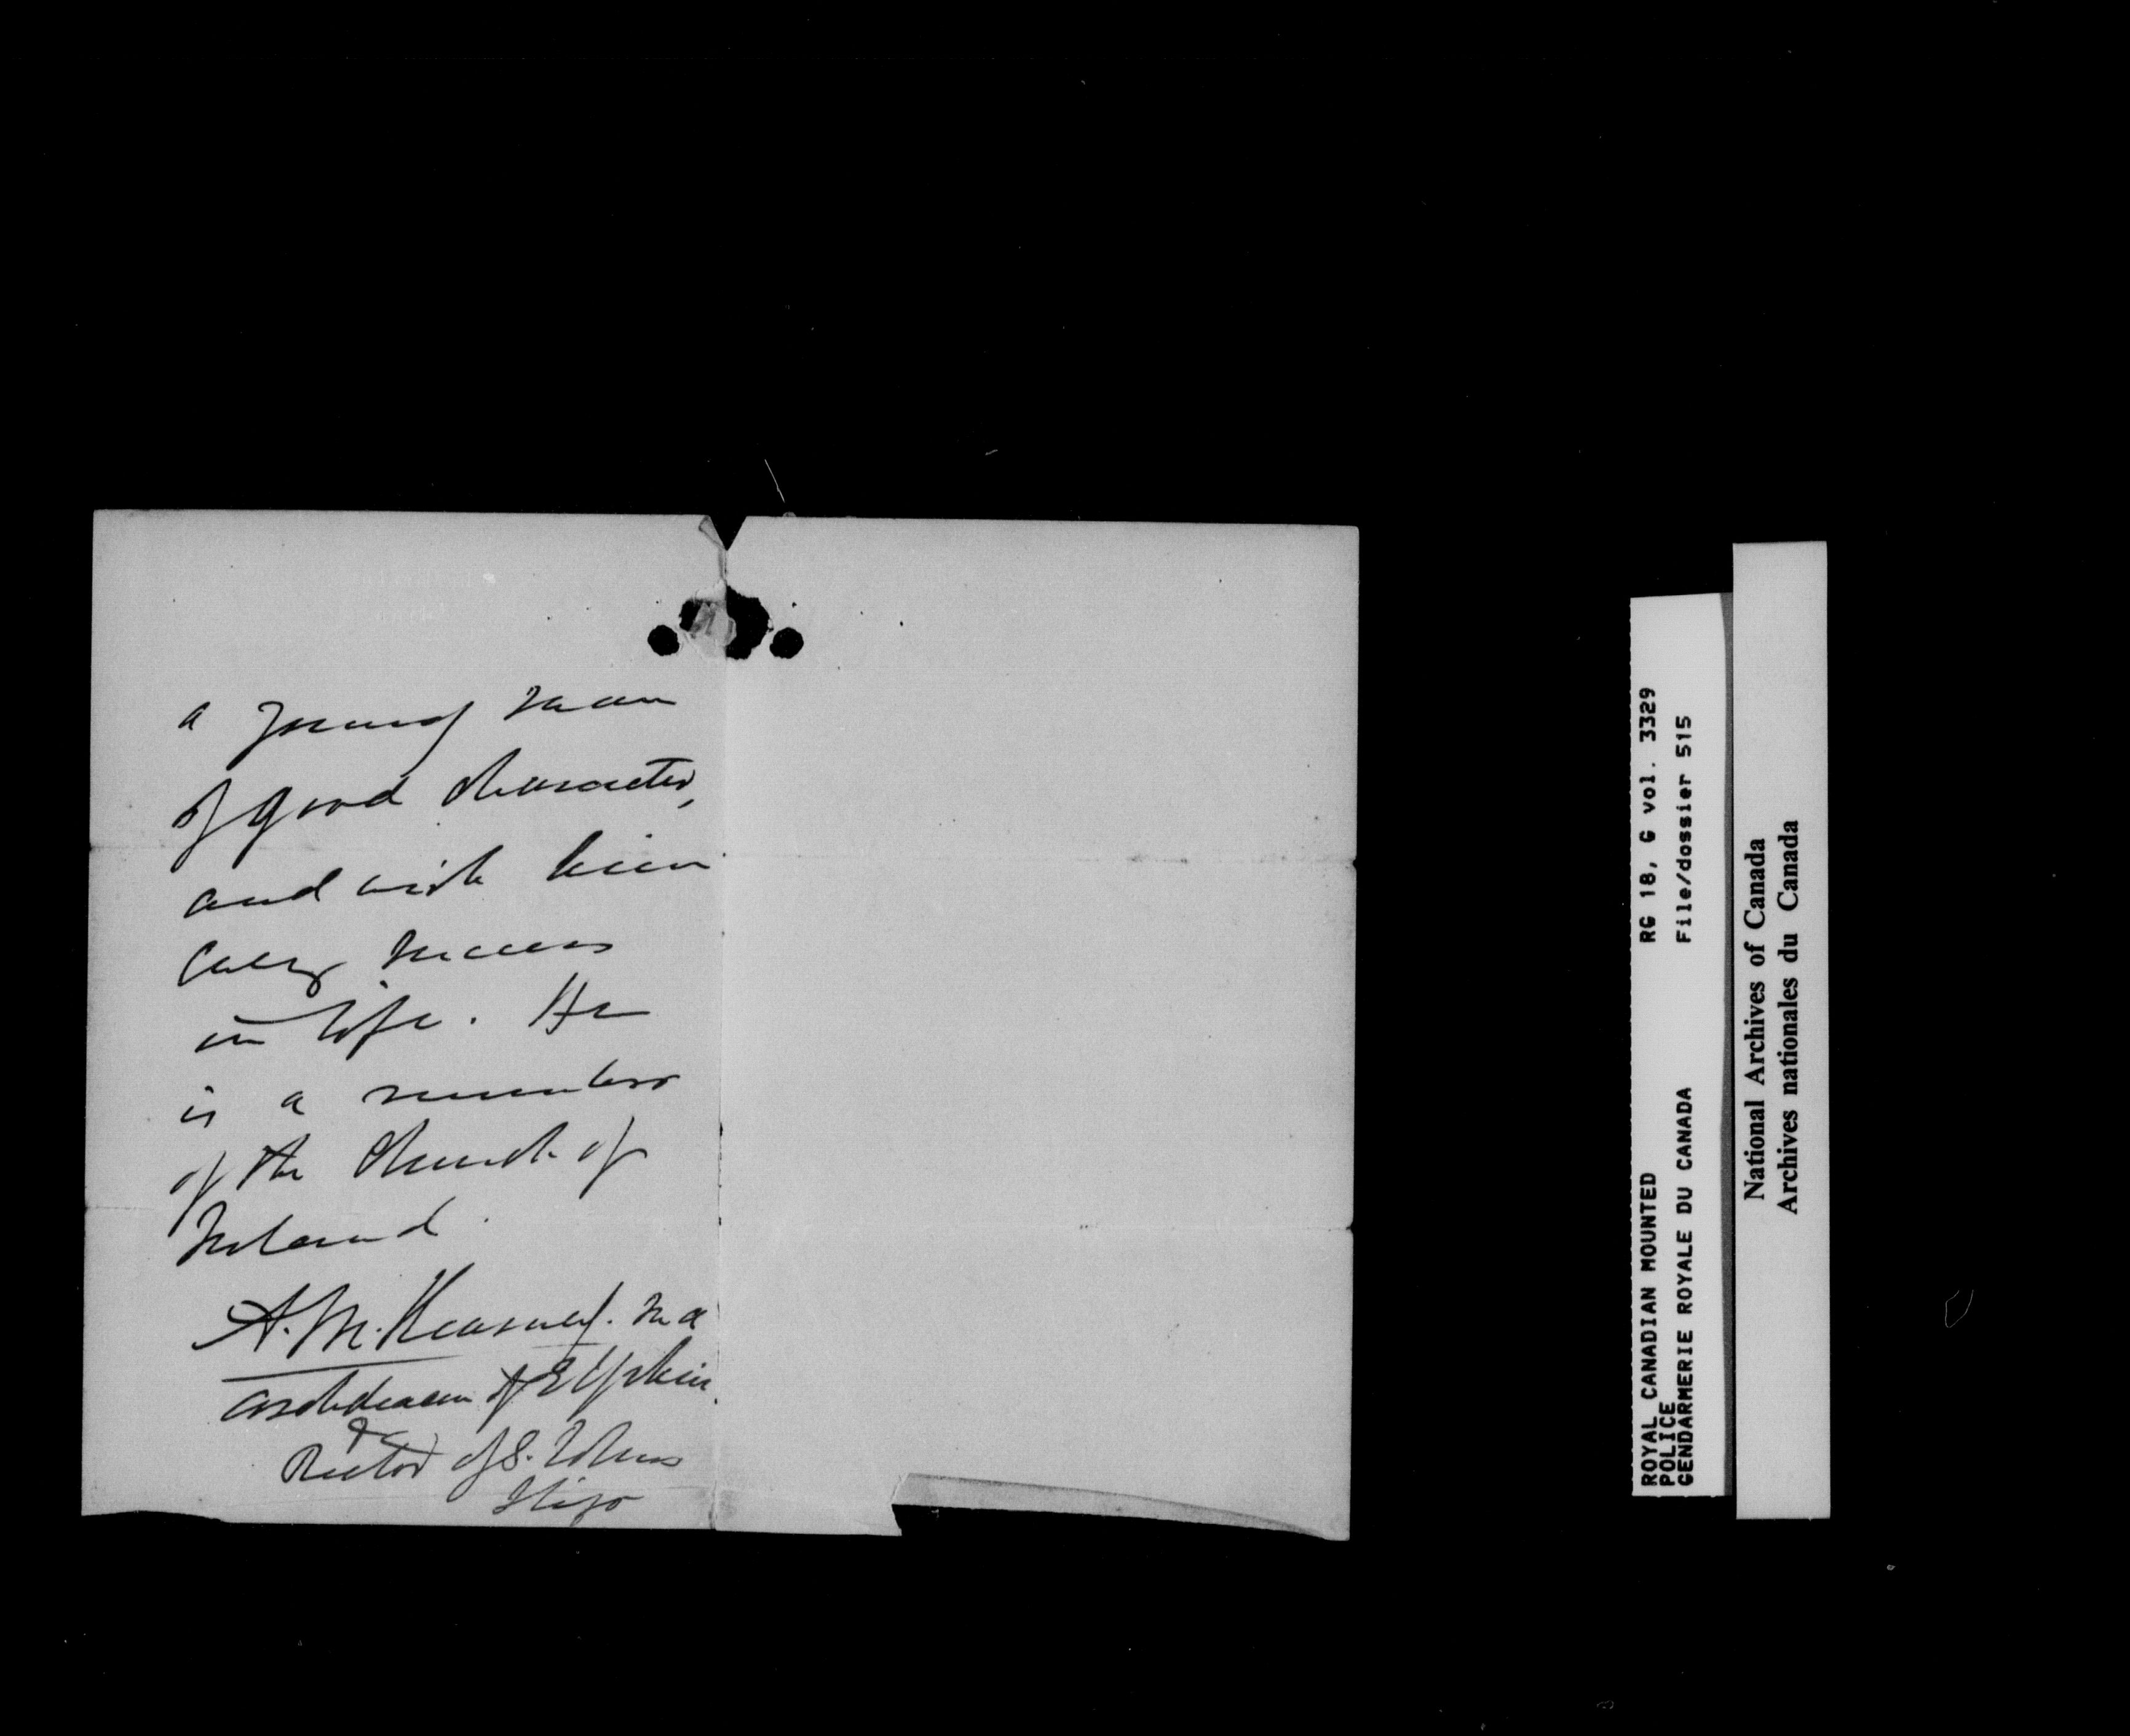 a young man
of good character,
and wish him
every success
in life. He
is a member
of the Church of
Ireland.
A. M. Kearney. M a
Archdeacon of Elphin.
&
Rector of S. Johns
Sligo
ROYAL CANADIAN MOUNTED RG 18, G vol. 3329
POLICE File/dossier 515
GENDARMERIE ROYALE DU CANADA
National Archives of Canada
Archives nationales du Canada